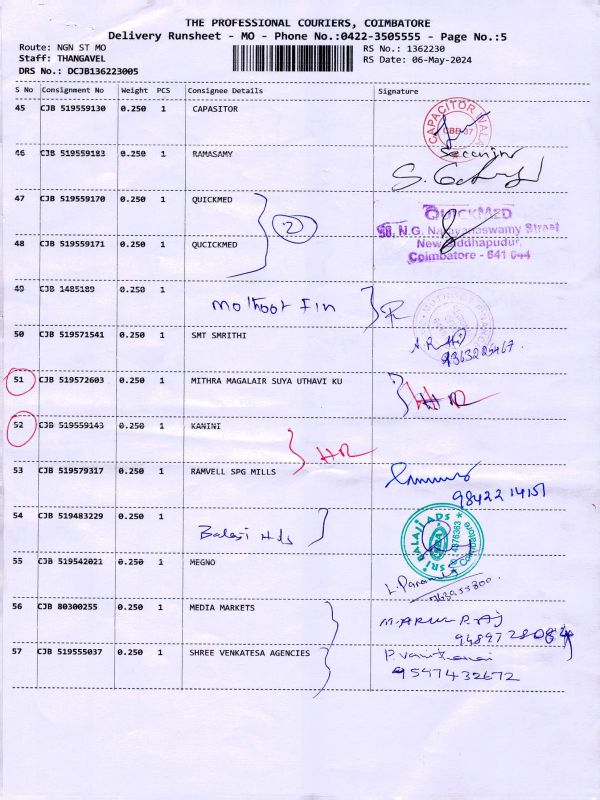 THE PROFESSIONAL COURIERS, COIMBATORE
Delivery Runsheet - MO - Phone No.:0422-3505555 - Page No.:5
Route: NGN ST MO
RS No.: 1362230
Staff: THANGAVEL
RS Date: 06-May-2024
DRS No.: DCJB136223005
S No Consignment No Weight PCS Consignee Details Signature
45 CJB 519559130 0.250 1 CAPASITOR
CAPACITOR
CBE-37
46 CJB 519559183 0.250 1 RAMASAMY
47 CJB 519559170 0.250 1 QUICKMED
2
QUICKMED
N.G. Narayanaswamy Street
New Siddhapudur,
Coimbatore - 641 044
48 CJB 519559171 0.250 1 QUCICKMED
49 CJB 1485189 0.250 1 Mothoot Fin
50 CJB 519571541 0.250 1 SMT SMRITHI
51 CJB 519572603 0.250 1 MITHRA MAGALAIR SUYA UTHAVI KU
52 CJB 519559143 0.250 1 KANINI
HR
53 CJB 519579317 0.250 1 RAMVELL SPG MILLS
98422 14151
54 CJB 519483229 0.250 1 Balaji Ads
SRI BALAJI ADS
Coimbatore
55 CJB 519542021 0.250 1 MEGNO
56 CJB 80300255 0.250 1 MEDIA MARKETS
M. ARUL RAJ
57 CJB 519555037 0.250 1 SHREE VENKATESA AGENCIES
9597432672